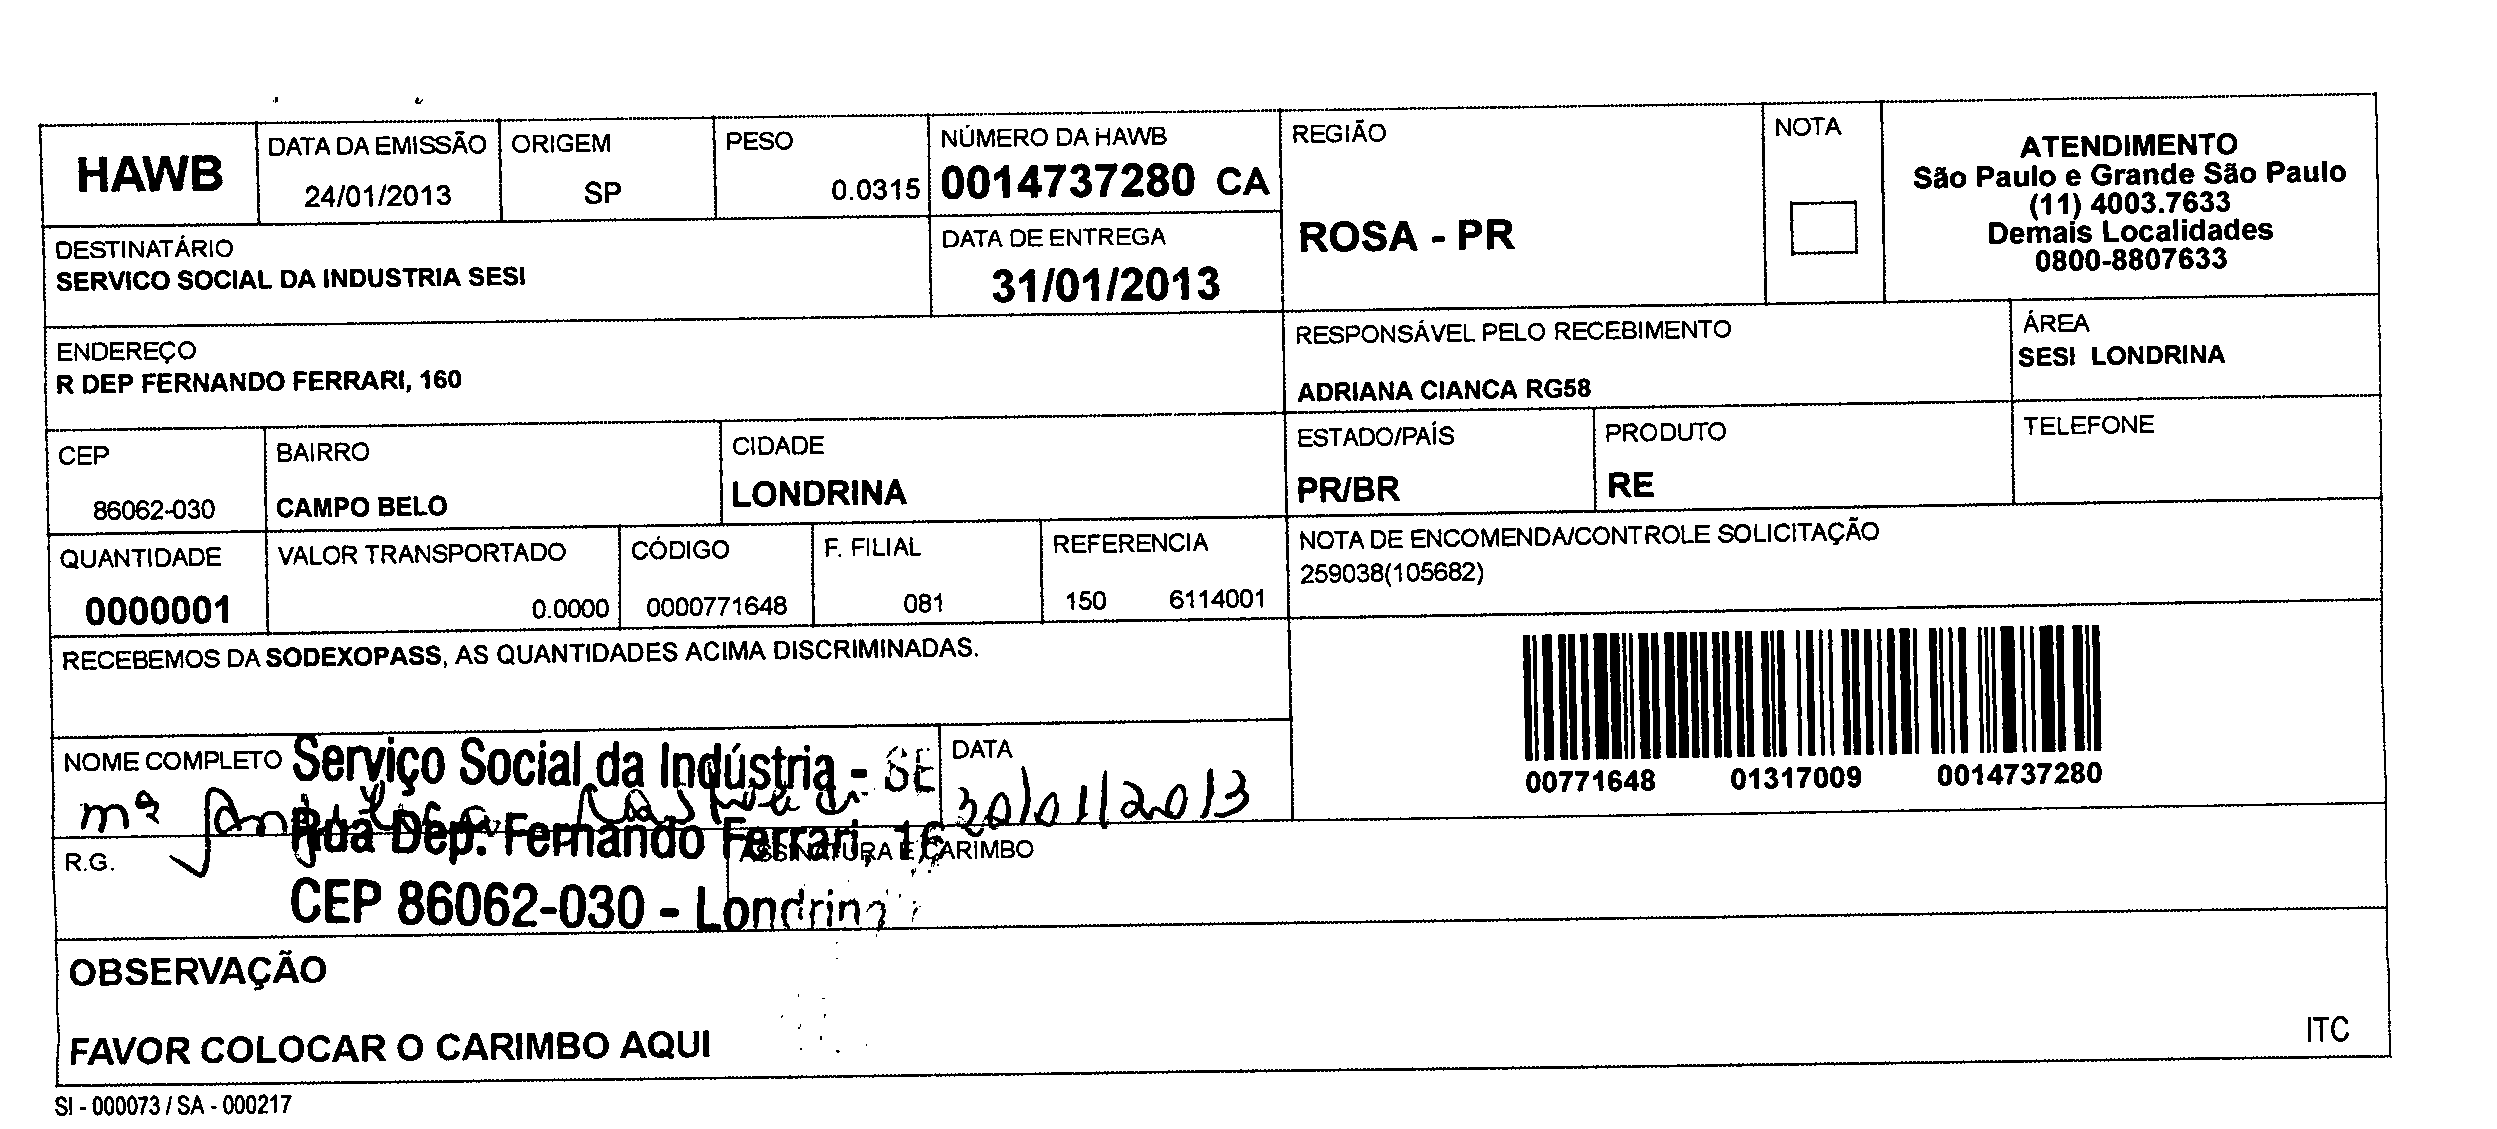 HAWB
DATA DA EMISSÃO
24/01/2013
ORIGEM
SP
PESO
0.0315
NÚMERO DA HAWB
0014737280 CA
REGIÃO
ROSA - PR
NOTA
ATENDIMENTO
São Paulo e Grande São Paulo
(11) 4003.7633
Demais Localidades
0800-8807633
DESTINATÁRIO
SERVICO SOCIAL DA INDUSTRIA SESI
DATA DE ENTREGA
31/01/2013
ENDEREÇO
R DEP FERNANDO FERRARI, 160
RESPONSÁVEL PELO RECEBIMENTO
ADRIANA CIANCA RG58
ÁREA
SESI LONDRINA
CEP
86062-030
BAIRRO
CAMPO BELO
CIDADE
LONDRINA
ESTADO/PAÍS
PR/BR
PRODUTO
RE
TELEFONE
QUANTIDADE
0000001
VALOR TRANSPORTADO
0.0000
CÓDIGO
0000771648
F. FILIAL
081
REFERENCIA
150 6114001
NOTA DE ENCOMENDA/CONTROLE SOLICITAÇÃO
259038(105682)
RECEBEMOS DA SODEXOPASS, AS QUANTIDADES ACIMA DISCRIMINADAS.
00771648 01317009 0014737280
NOME COMPLETO
Serviço Social da Indústria - SE
mª
DATA
30/01/2013
Rua Dep. Fernando Ferrari, 16
R.G.
ASSINATURA E CARIMBO
CEP 86062-030 - Londrina
OBSERVAÇÃO
FAVOR COLOCAR O CARIMBO AQUI
ITC
SI - 000073 / SA - 000217